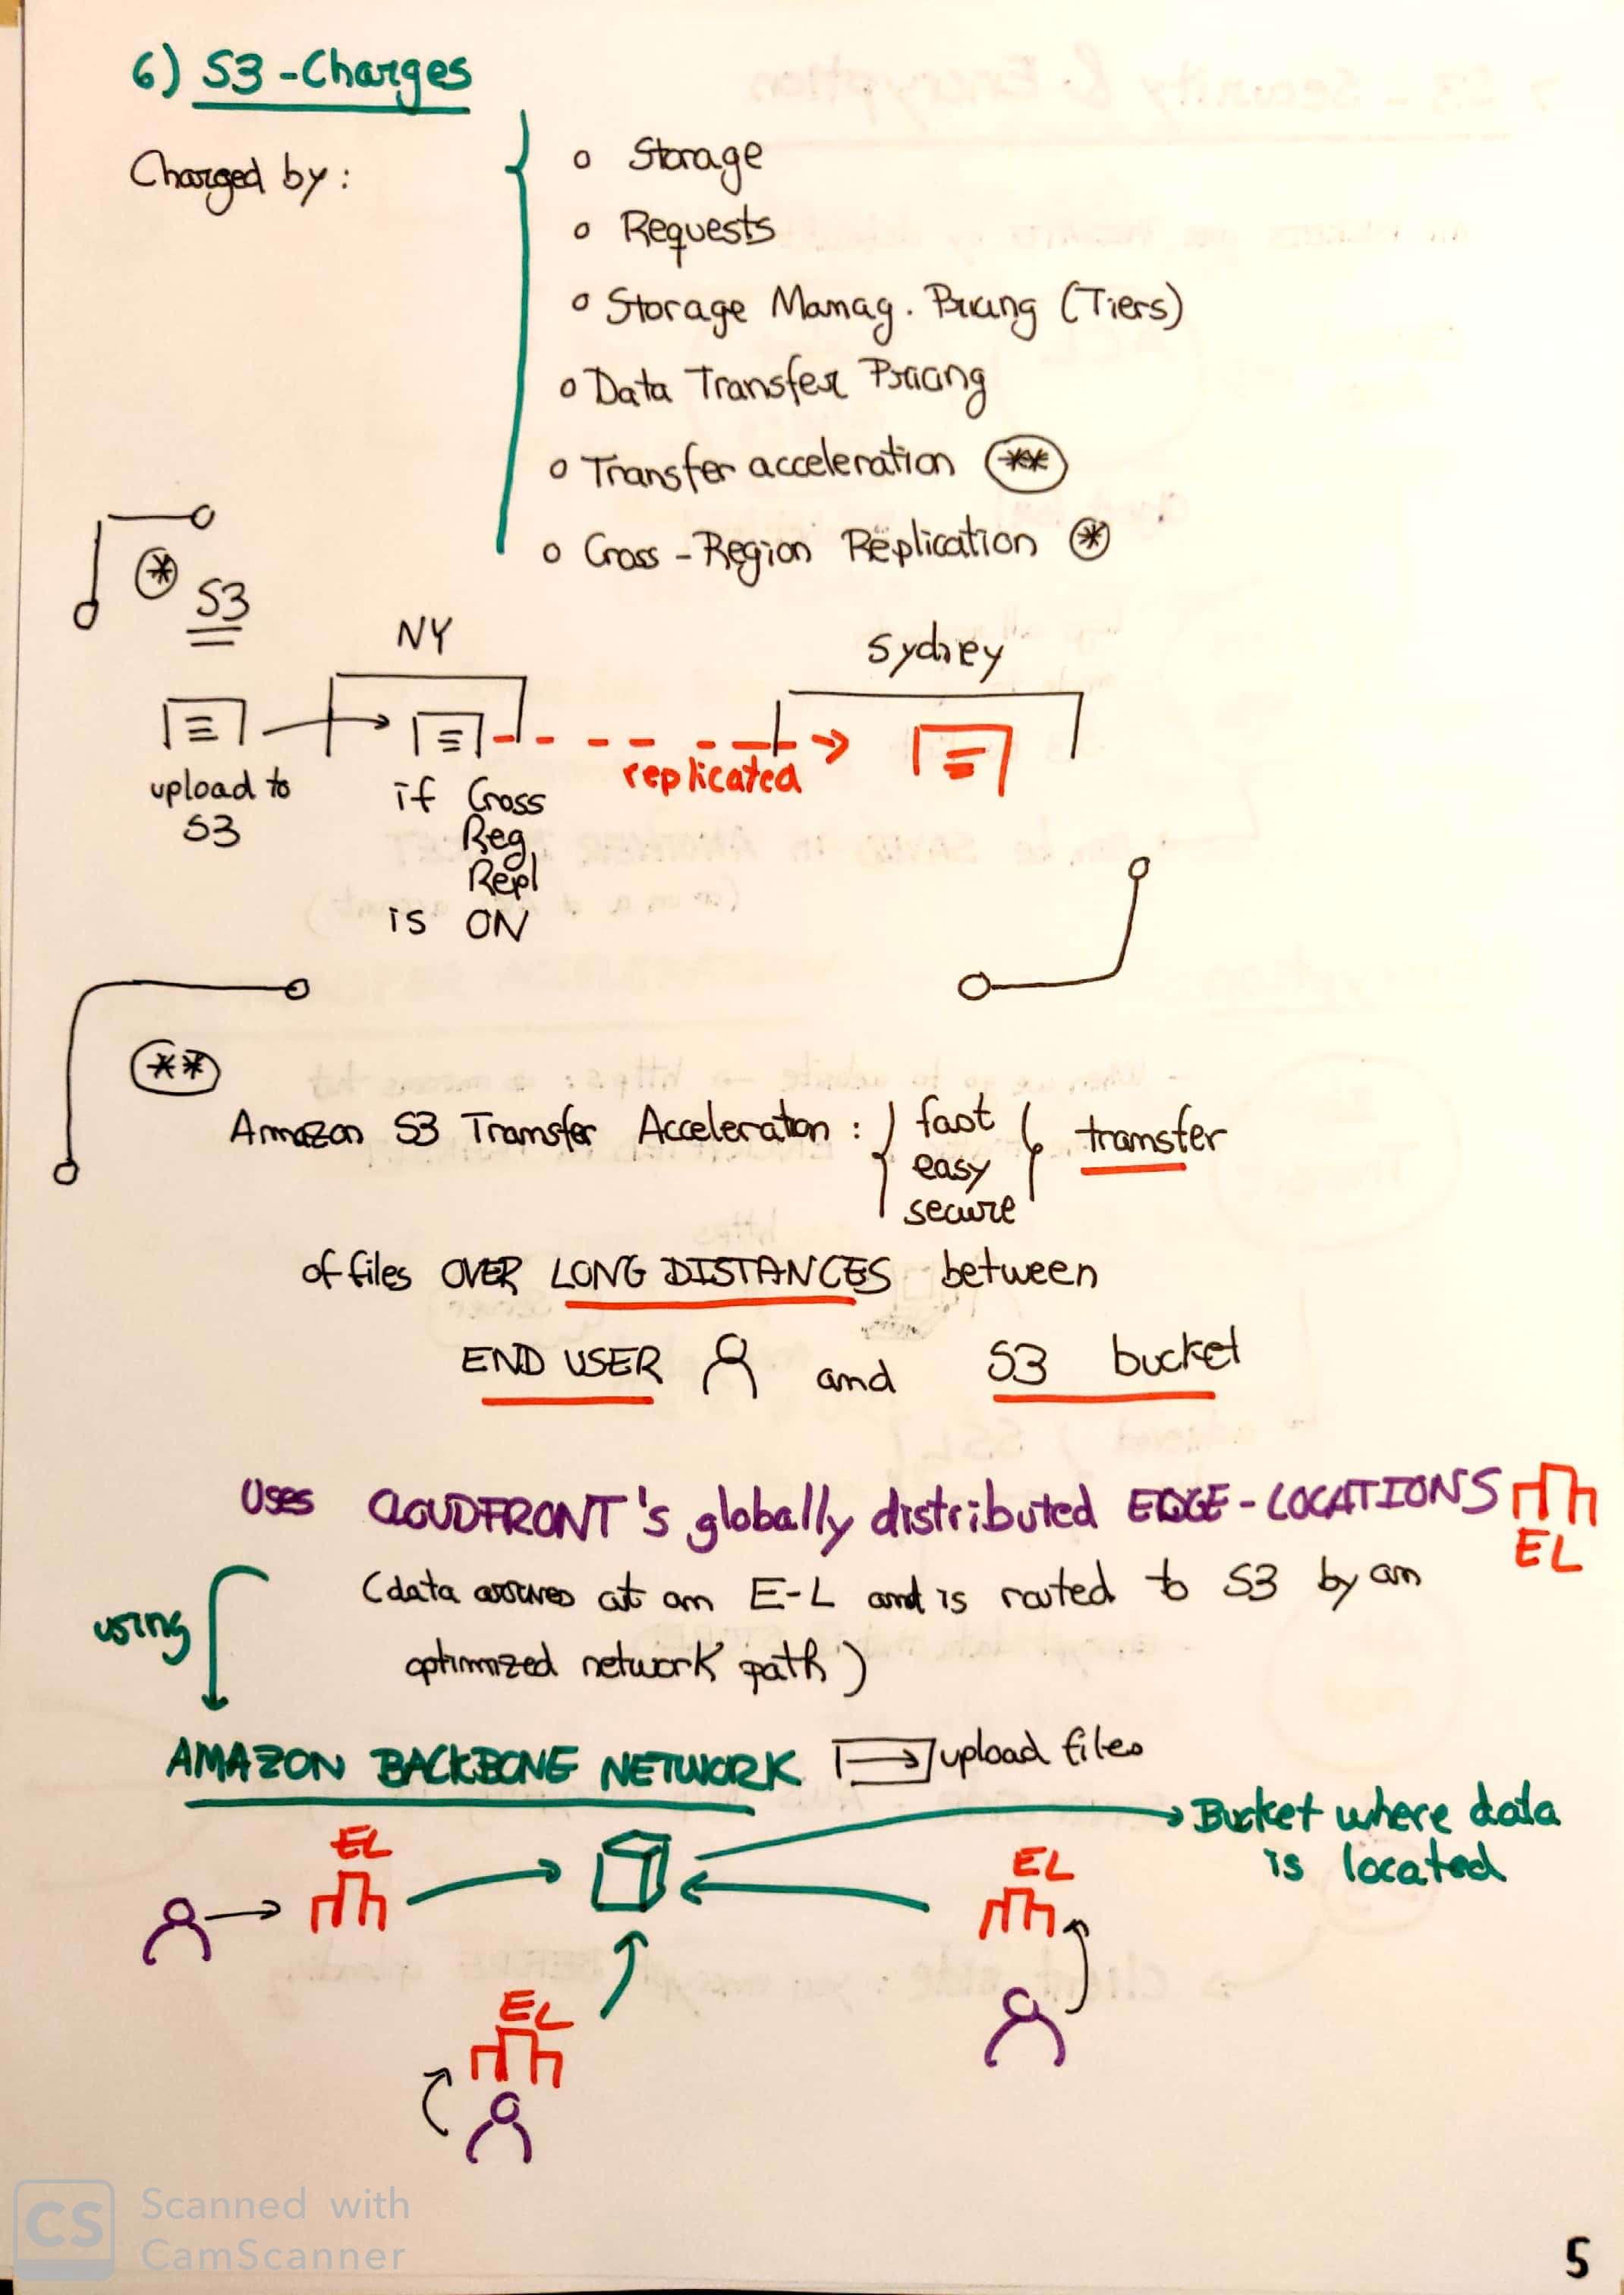 6) S3 - Charges
Charged by:
o Storage
o Requests
o Storage Manag. Pricing (Tiers)
o Data Transfer Pricing
o Transfer acceleration **
o Cross - Region Replication *
* S3
NY
Sydney
upload to
S3
if Cross
Reg
Repl
is ON
replicated
**
Amazon S3 Transfer Acceleration : fast transfer
easy
secure
of files OVER LONG DISTANCES between
END USER and S3 bucket
Uses CLOUDFRONT's globally distributed EDGE - LOCATIONS
EL
(data arrives at an E-L and is routed to S3 by an
using
optimized network path)
AMAZON BACKBONE NETWORK upload files
Bucket where data
is located
EL
EL
EL
CS Scanned with
CamScanner
5